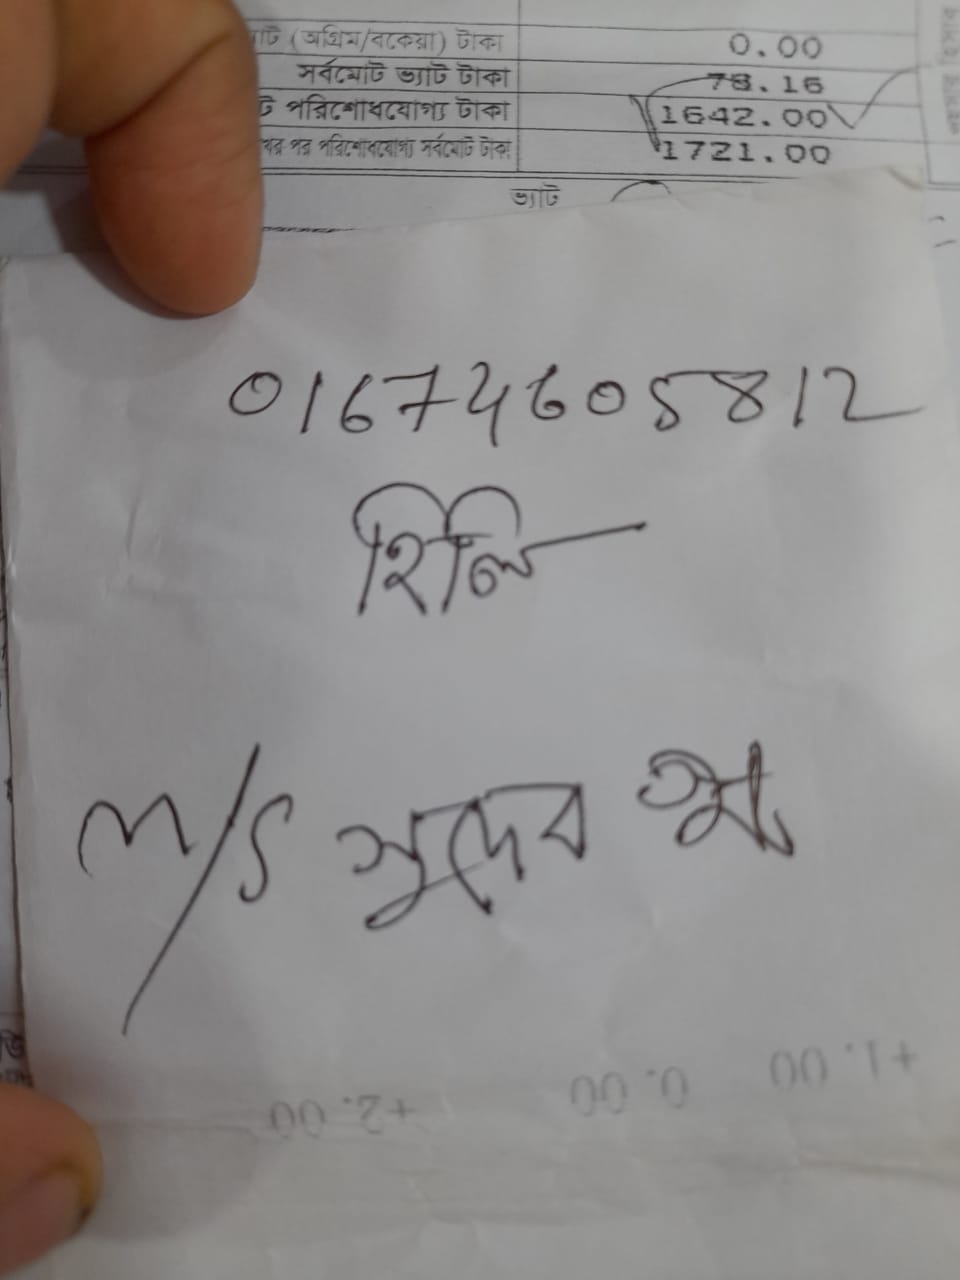 (অগ্রিম/বকেয়া) টাকা 0.00
সর্বমোট ভ্যাট টাকা 78.16
পরিশোধযোগ্য টাকা 1642.00
পর পরিশোধযোগ্য সর্বমোট টাকা 1721.00
ভ্যাট
01674605812
হিলি
M/S সুদেব
+1.00
0.00
+2.00